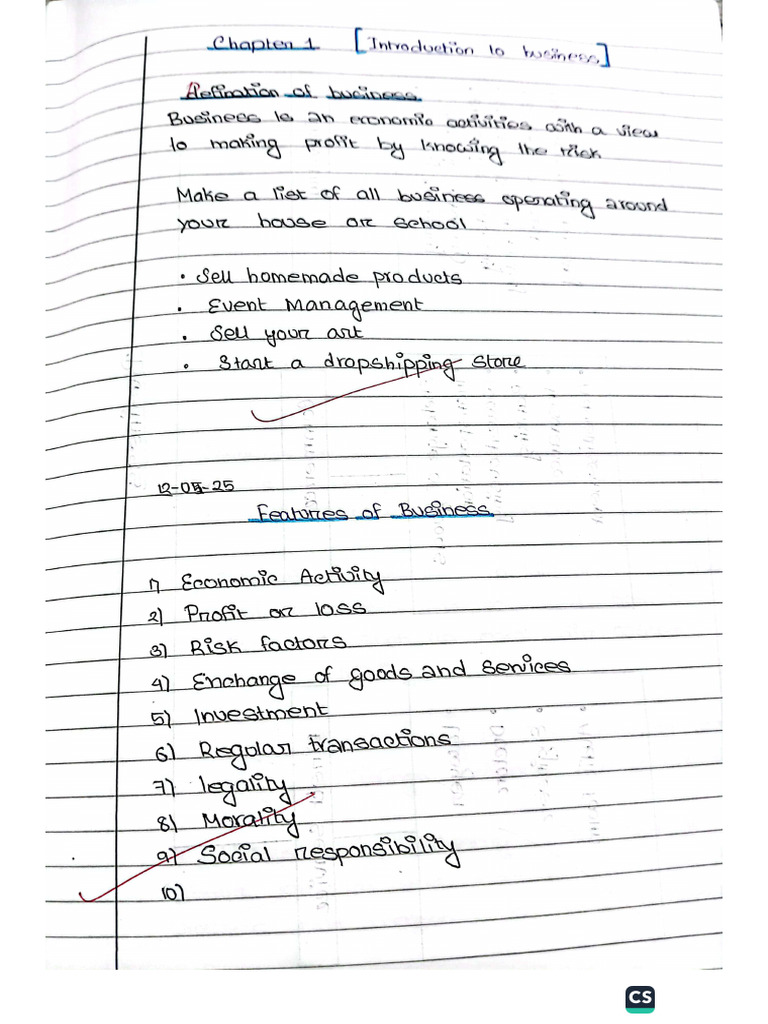 Chapter 1 [Introduction to business]
Defination of business
Business is an economic activities with a view
to making profit by knowing the risk
Make a list of all business operating around
your house or school
• Sell homemade products
• Event Management
• Sell your art
• Start a dropshipping store
12-05-25
Features of Business
1) Economic Activity
2) Profit or loss
3) Risk factors
4) Exchange of goods and services
5) Investment
6) Regular transactions
7) legality
8) Morality
9) Social responsibility
10)
CS